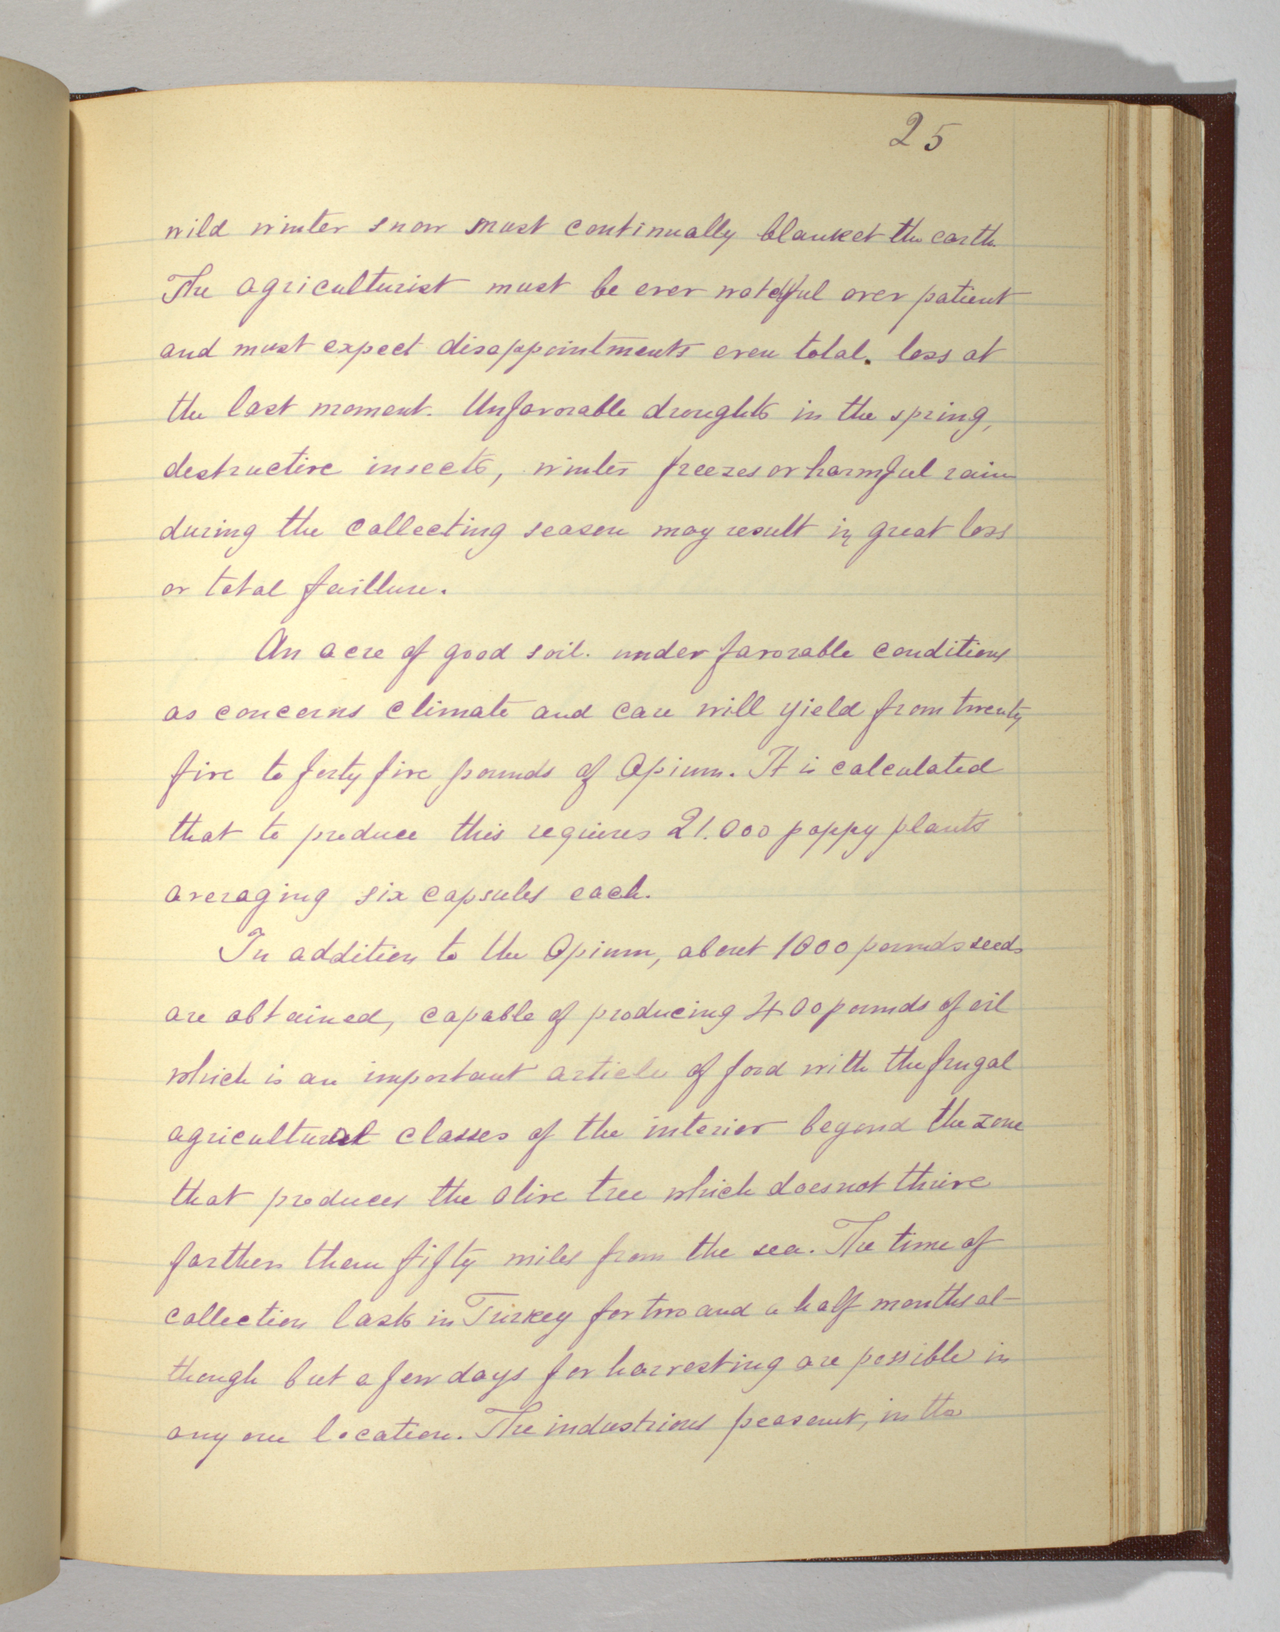 25
wild winter snow must continually blanket the earth
The agriculturist must be ever watchful over patient
and must expect disappointments even total. loss at
the last moment. Unfavorable droughts in the spring,
destructive insects, winter freezes or harmful rain
during the collecting season may result in great loss
or total faillure.
An acre of good soil. under favorable conditions
as concerns climate and care will yield from twenty
five to forty five pounds of Opium. It is calculated
that to produce this requires 21.000 poppy plants
averaging six capsules each.
In addition to the Opium, about 1000 pounds seeds
are obtained, capable of producing 400 pounds of oil
which is an important article of food with the frugal
agricultural classes of the interior beyond the zone
that produces the olive tree which does not thrive
farther than fifty miles from the sea. The time of
collection lasts in Turkey for two and a half months al-
though but a few days for harvesting are possible in
any one location. The industrious peasant, in the